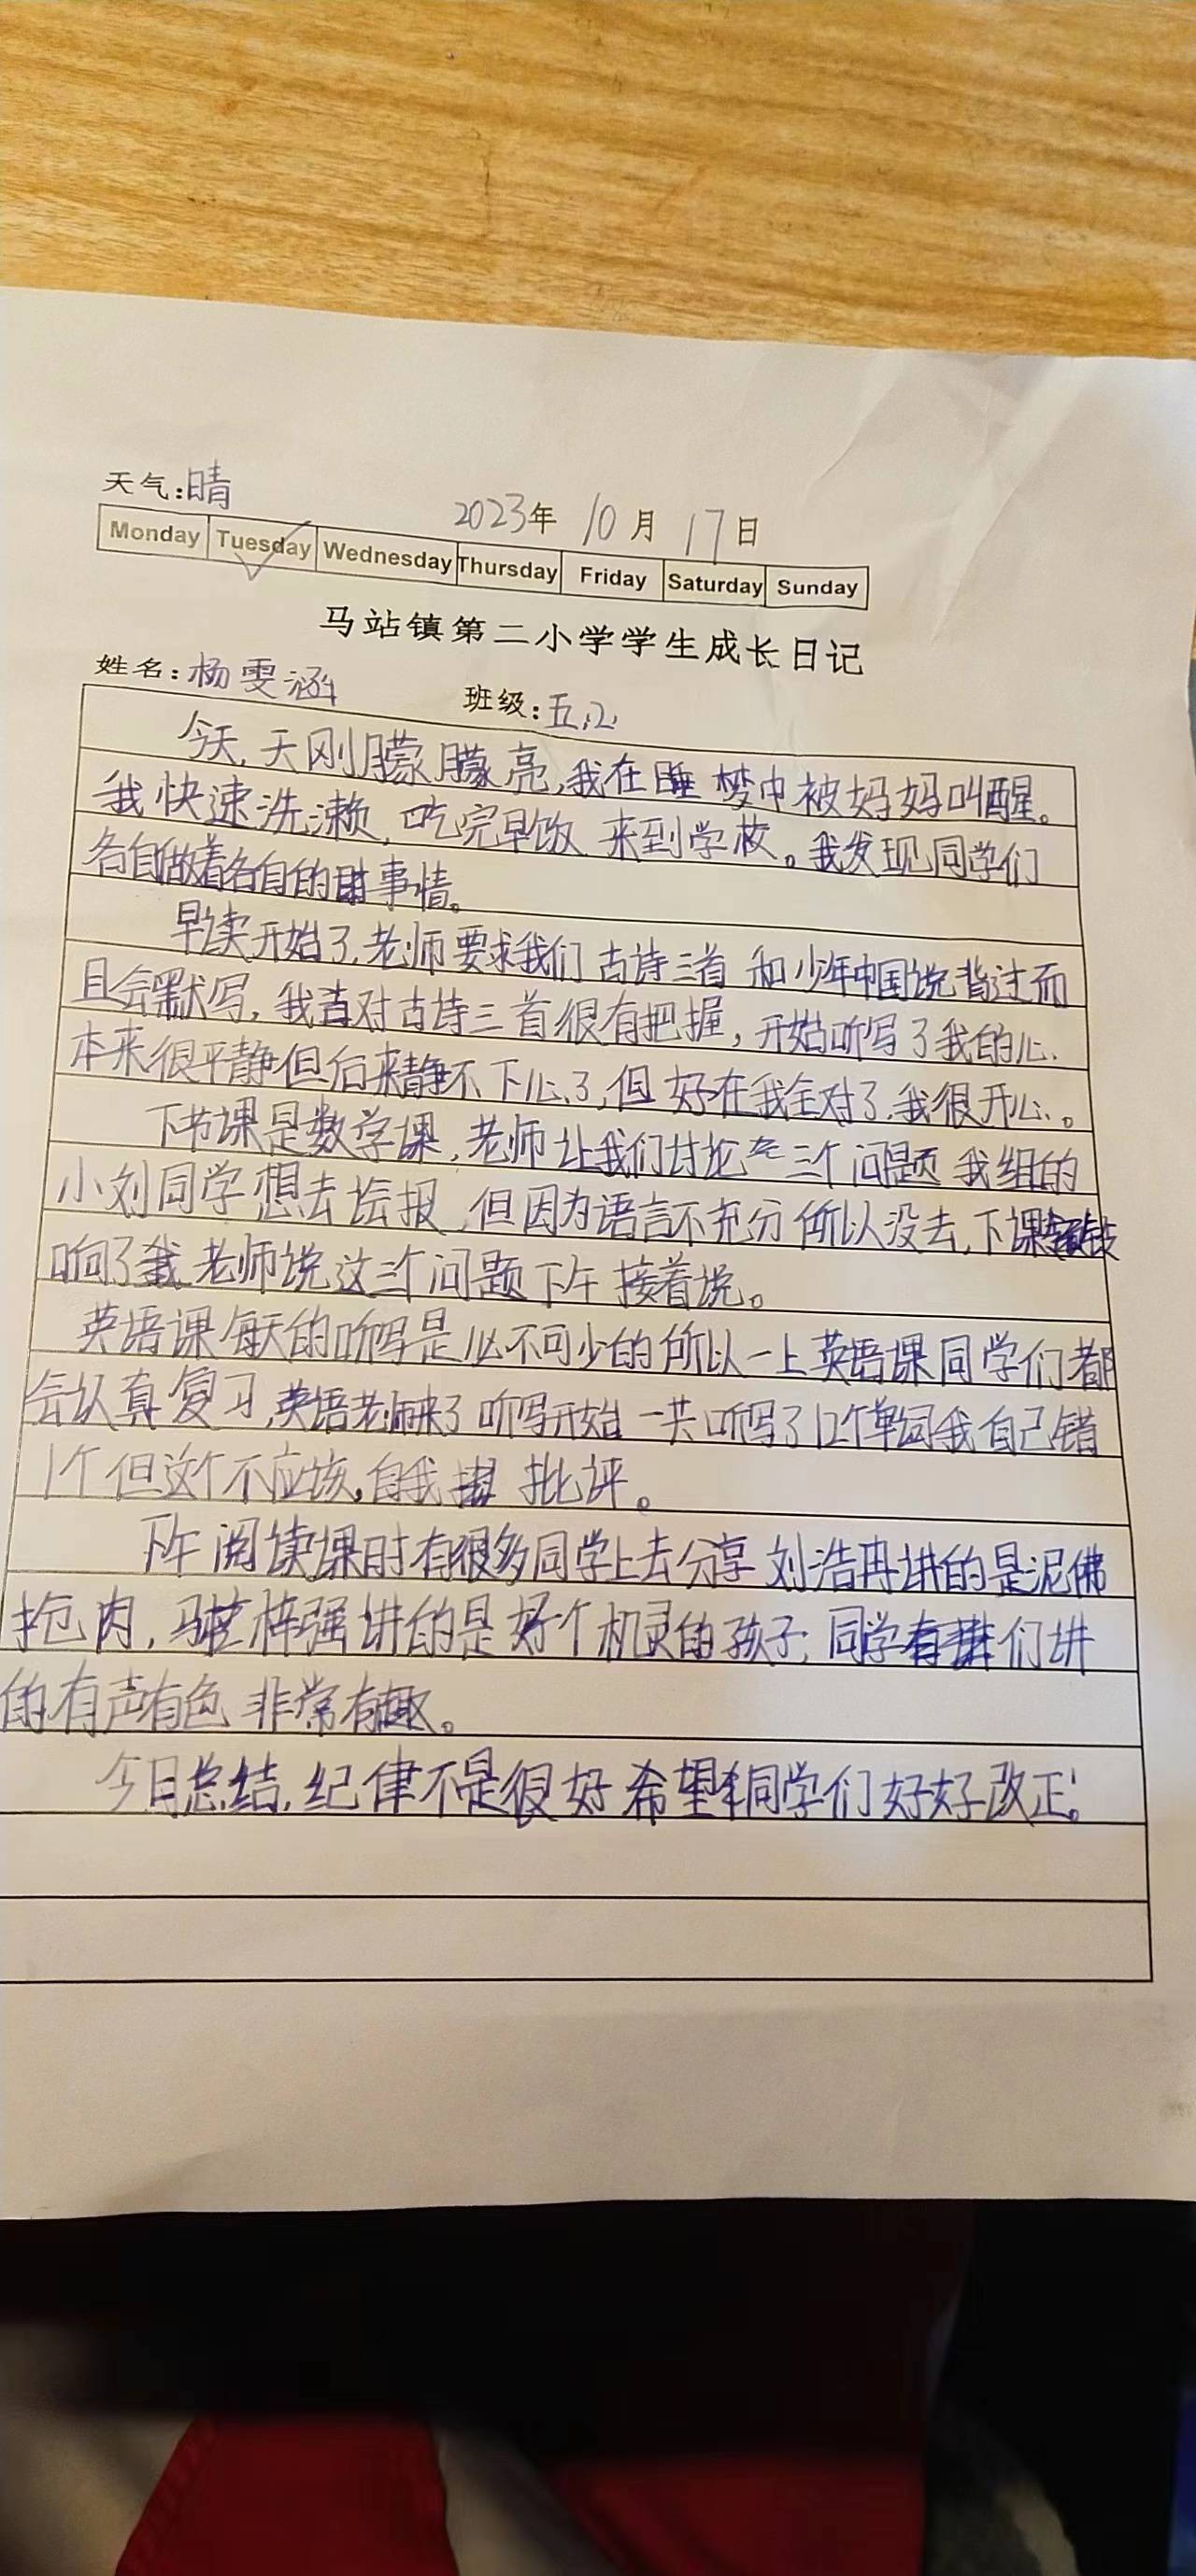 天气:晴
2023年 10月 17日
Monday Tuesday Wednesday Thursday Friday Saturday Sunday
马站镇第二小学学生成长日记
姓名:杨雯涵 班级:五.2
今天,天刚朦朦亮,我在睡梦中被妈妈叫醒。
我快速洗漱,吃完早饭来到学校。我发现同学们
各自做着各自的事情。
早读开始了,老师要求我们古诗三首和少年中国说背过而
且会默写,我对古诗三首很有把握,开始听写了我的心
本来很平静但后来静不下心了,但好在我全对了,我很开心。
下节课是数学课,老师让我们讨论三个问题我组的
小刘同学想去汇报,但因为语言不充分所以没去,下课
响了老师说这三个问题下午接着说。
英语课每天的听写是必不可少的所以一上英语课同学们都
会认真复习,英语老师来了听写开始一共听写了12个单词我自己错
1个但这个不应该,自我批评。
下午阅读课时有很多同学上去分享刘浩冉讲的是泥佛
抢肉,马梓强讲的是好个机灵的孩子,同学们讲
的有声有色非常有趣。
今日总结,纪律不是很好希望同学们好好改正!